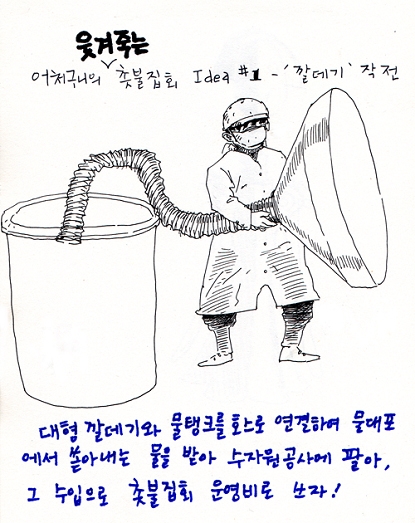 웃겨죽는
어처구니의 촛불집회 Idea #1 - '깔데기' 작전
대형 깔데기와 물탱크를 호스로 연결하여 물대포
에서 쏟아내는 물을 받아 수자원공사에 팔아,
그 수입으로 촛불집회 운영비로 쓰자!